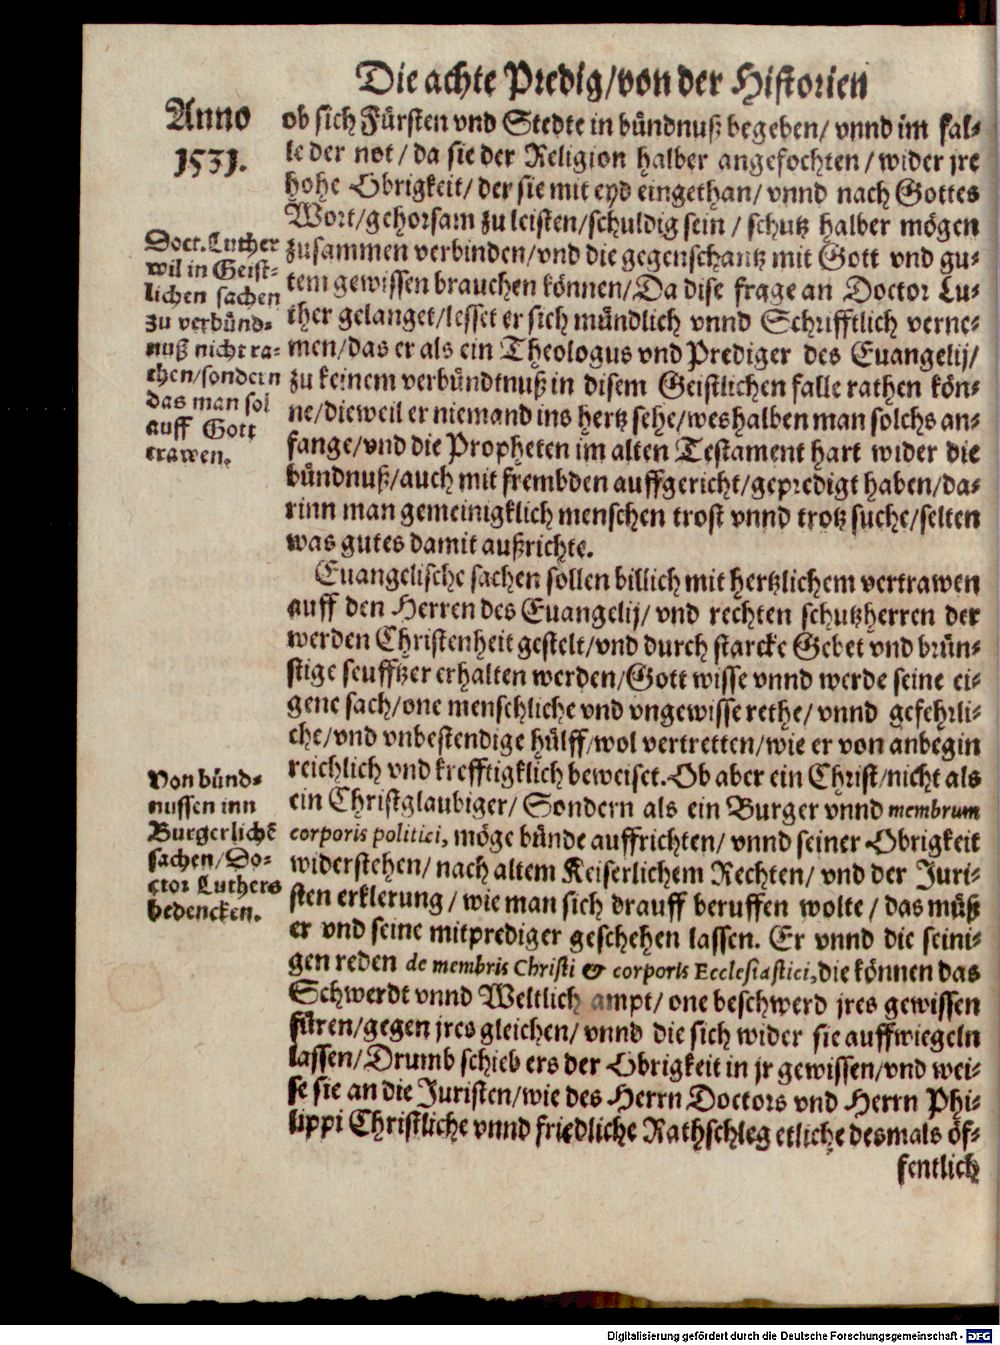 Die achte Predig/von der Historien
Anno
1531.
ob sich Fürsten vnd Stedte in bündnuß begeben/ vnnd im fal-
le der not/ da sie der Religion halber angefochten/ wider jre
hohe Obrigkeit/ der sie mit eyd eingethan/ vnnd nach Gottes
Wort/gehorsam zu leisten/schuldig sein/ schutz halber mögen
zusammen verbinden/vnd die gegenschantz mit Gott vnd gu-
tem gewissen brauchen können/Da dise frage an Doctor Lu-
ther gelanget/lesset er sich mündlich vnnd Schrifftlich verne-
men/das er als ein Theologus vnd Prediger des Euangelij/
zu keinem verbündtnuß in disem Geistlichen falle rathen kön-
ne/dieweil er niemand ins hertz sehe/weshalben man solchs an-
fange/vnd die Propheten im alten Testament hart wider die
bündnuß/auch mit frembden auffgericht/gepredigt haben/da-
rinn man gemeinigklich menschen trost vnnd trotz suche/selten
was gutes damit außrichte.
Doct. Luther
wil in Geist-
lichen sachen
zu verbünd-
nuß nicht ra-
then/sondern
das man sol
auff Gott
trawen.
Euangelische sachen sollen billich mit hertzlichem vertrawen
auff den Herren des Euangelij/ vnd rechten schutzherren der
werden Christenheit gestelt/vnd durch starcke Gebet vnd brün-
stige seufftzer erhalten werden/Gott wisse vnnd werde seine ei-
gene sach/one menschliche vnd vngewisse rethe/ vnnd gefehrli-
che/vnd vnbestendige hülff/wol vertretten/wie er von anbegin
reichlich vnd krefftigklich beweiset. Ob aber ein Christ/nicht als
ein Christglaubiger/ Sondern als ein Burger vnnd membrum
corporis politici, möge bünde auffrichten/ vnnd seiner Obrigkeit
widerstehen/ nach altem Keiserlichem Rechten/ vnd der Juri-
sten erklerung/ wie man sich drauff beruffen wolte/ das müß
er vnd seine mitprediger geschehen lassen. Er vnnd die seini-
gen reden de membris Christi & corporis Ecclesiastici, die können das
Schwerdt vnnd Weltlich ampt/ one beschwerd jres gewissen
füren/gegen jres gleichen/ vnnd die sich wider sie auffwiegeln
lassen/Drumb schieb ers der Obrigkeit in jr gewissen/vnd wei-
se sie an die Juristen/wie des Herrn Doctors vnd Herrn Phi-
lippi Christliche vnnd friedliche Rathschleg etliche desmals öf-
fentlich
Von bünd-
nussen inn
Burgerlichẽ
sachen/Do-
ctor Luthers
bedencken.
Digitalisierung gefördert durch die Deutsche Forschungsgemeinschaft - DFG